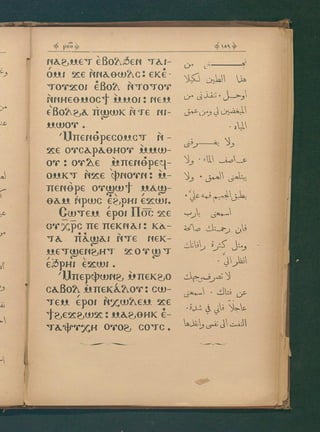 ⲣⲛⲑ
١٥٩
ⲛⲁϩⲙⲉⲧ ⲉ̀ⲃⲟⲗϧⲉⲛ ⲧⲁⲓ-
ⲟ̀ⲙⲓ ϫⲉ ⲛ̀ⲛⲁⲑⲱⲗⲥ: ⲉⲕⲉ̀-
ⲧⲟⲩϫⲟⲓ ⲉ̀ⲃⲟⲗ ⲛ̀ⲧⲟⲧⲟⲩ
ⲛ̀ⲛⲏⲉⲑⲙⲟⲥϯ ⲙ̀ⲙⲟⲓ: ⲛⲉⲙ
ⲉ̀ⲃⲟⲗϩⲁ ⲡ̀ϣⲱⲕ ⲛ̀ⲧⲉ ⲛⲓ-
ⲙⲱⲟⲩ.
Ⲙ̀ⲡⲉⲛⲑⲣⲉⲥⲟⲙⲥⲧ ⲛ̀-
ϫⲉ ⲟⲩⲥⲁⲣⲁⲑⲏⲟⲩ ⲙ̀ⲙⲱ-
ⲟⲩ: ⲟⲩⲇⲉ ⲙ̀ⲡⲉⲛⲑⲣⲉϥ-
ⲟⲙⲕⲧ ⲛ̀ϫⲉ ⲫⲛⲟⲩⲛ: ⲙ̀-
ⲡⲉⲛⲑⲣⲉ ⲟⲩϣⲱϯ ⲙⲁϣ-
ⲑⲁⲙ ⲛ̀ⲣⲱⲥ ⲉ̀ϩ̀ⲣⲏⲓ ⲉ̀ϫⲱⲓ.
Ⲥⲱⲧⲉⲙ ⲉ̀ⲣⲟⲓ Ⲡⲟ̅ⲥ̅ ϫⲉ
ⲟⲩⲭ̅ⲣ̅ⲥ̅ ⲡⲉ ⲡⲉⲕⲛⲁⲓ: ⲕⲁ-
ⲧⲁ ⲡ̀ⲁ̀ϣⲁⲓ ⲛ̀ⲧⲉ ⲛⲉⲕ-
ⲙⲉⲧϣⲉⲛϩⲏⲧ ϫⲟⲩϣⲧ
ⲉ̀ϧ̀ⲣⲏⲓ ⲉ̀ϫⲱⲓ.
Ⲙ̀ⲡⲉⲣⲫⲱⲛϩ ⲙ̀ⲡⲉⲕϩⲟ
ⲥⲁⲃⲟⲗ ⲙ̀ⲡⲉⲕⲁ̀ⲗⲟⲩ: ⲥⲱ-
ⲧⲉⲙ ⲉ̀ⲣⲟⲓ ⲛ̀ⲭⲱⲗⲉⲙ ϫⲉ
ϯϩⲉϫϩⲱϫ: ⲙⲁϩⲑⲏⲕ ⲉ̀-
ⲧⲁⲯⲩⲭⲏ ⲟⲩⲟϩ ⲥⲟⲧⲥ.
نجــــــنى من
هذا الطين لكيلا
اوحل. تنقذنى من
المبغضين لي ومن عمق
المياه.
ولا يغـــرقنى
عــاصف الماء. ولا
يبتلعنى العمق. ولا
يطبق الجب فمه علي.
اسمعنى يارب
فان رحمتك صالحة
ومثل كثرة رافاتك
انظر الي.
لا تصرف وجهك
عن فتاك. اسمعنى
عاجلاً فاني في شدة.
التفت الى نفسى وانقذها